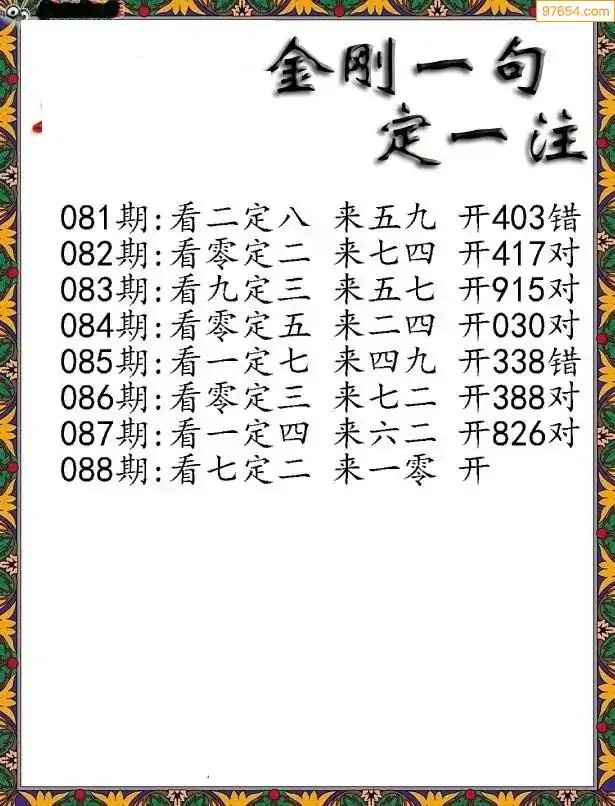 97654.com
金刚一句
定一注
081期:看二定八 来五九 开403错
082期:看零定二 来七四 开417对
083期:看九定三 来五七 开915对
084期:看零定五 来二四 开030对
085期:看一定七 来四九 开338错
086期:看零定三 来七二 开388对
087期:看一定四 来六二 开826对
088期:看七定二 来一零 开